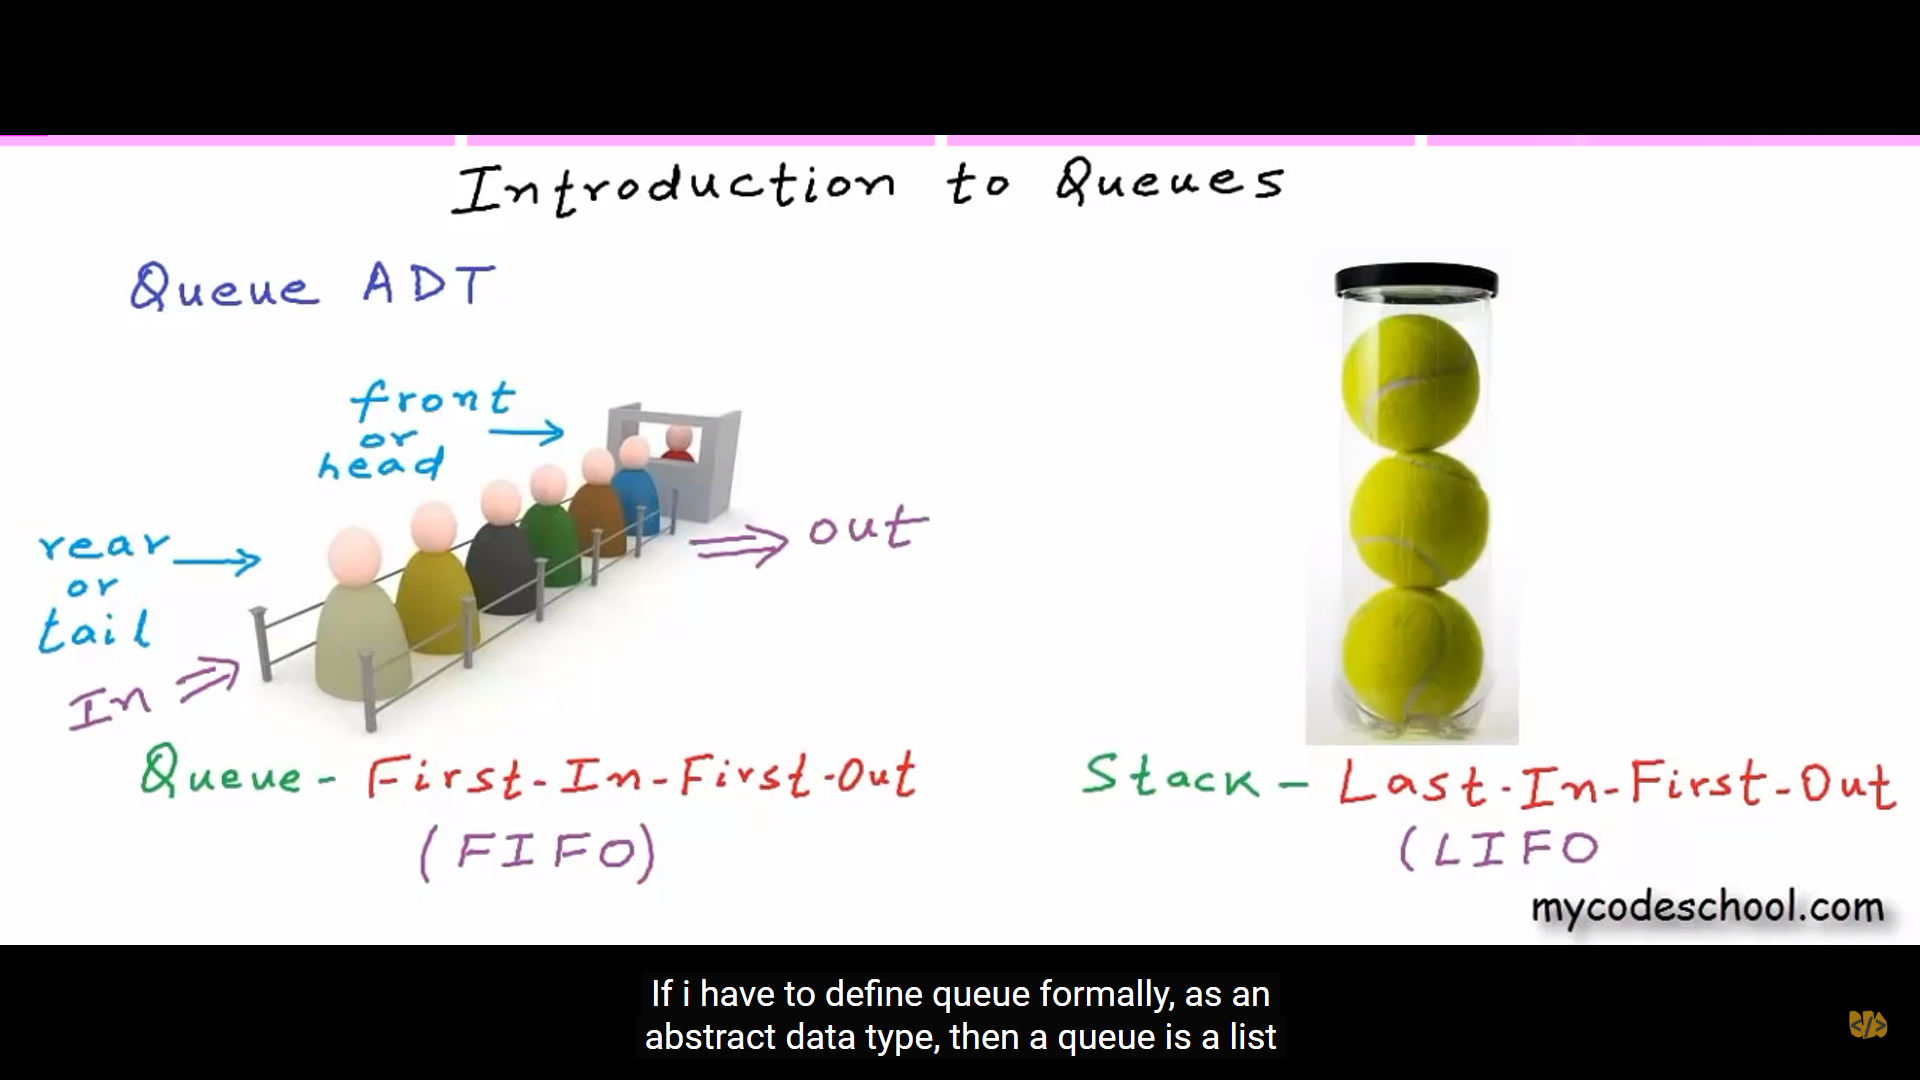 Introduction to Queues
Queue ADT
front
or
head
rear
or
tail
In
out
Queue - First-In-First-Out
(FIFO)
Stack - Last-In-First-Out
(LIFO
mycodeschool.com
If i have to define queue formally, as an
abstract data type, then a queue is a list